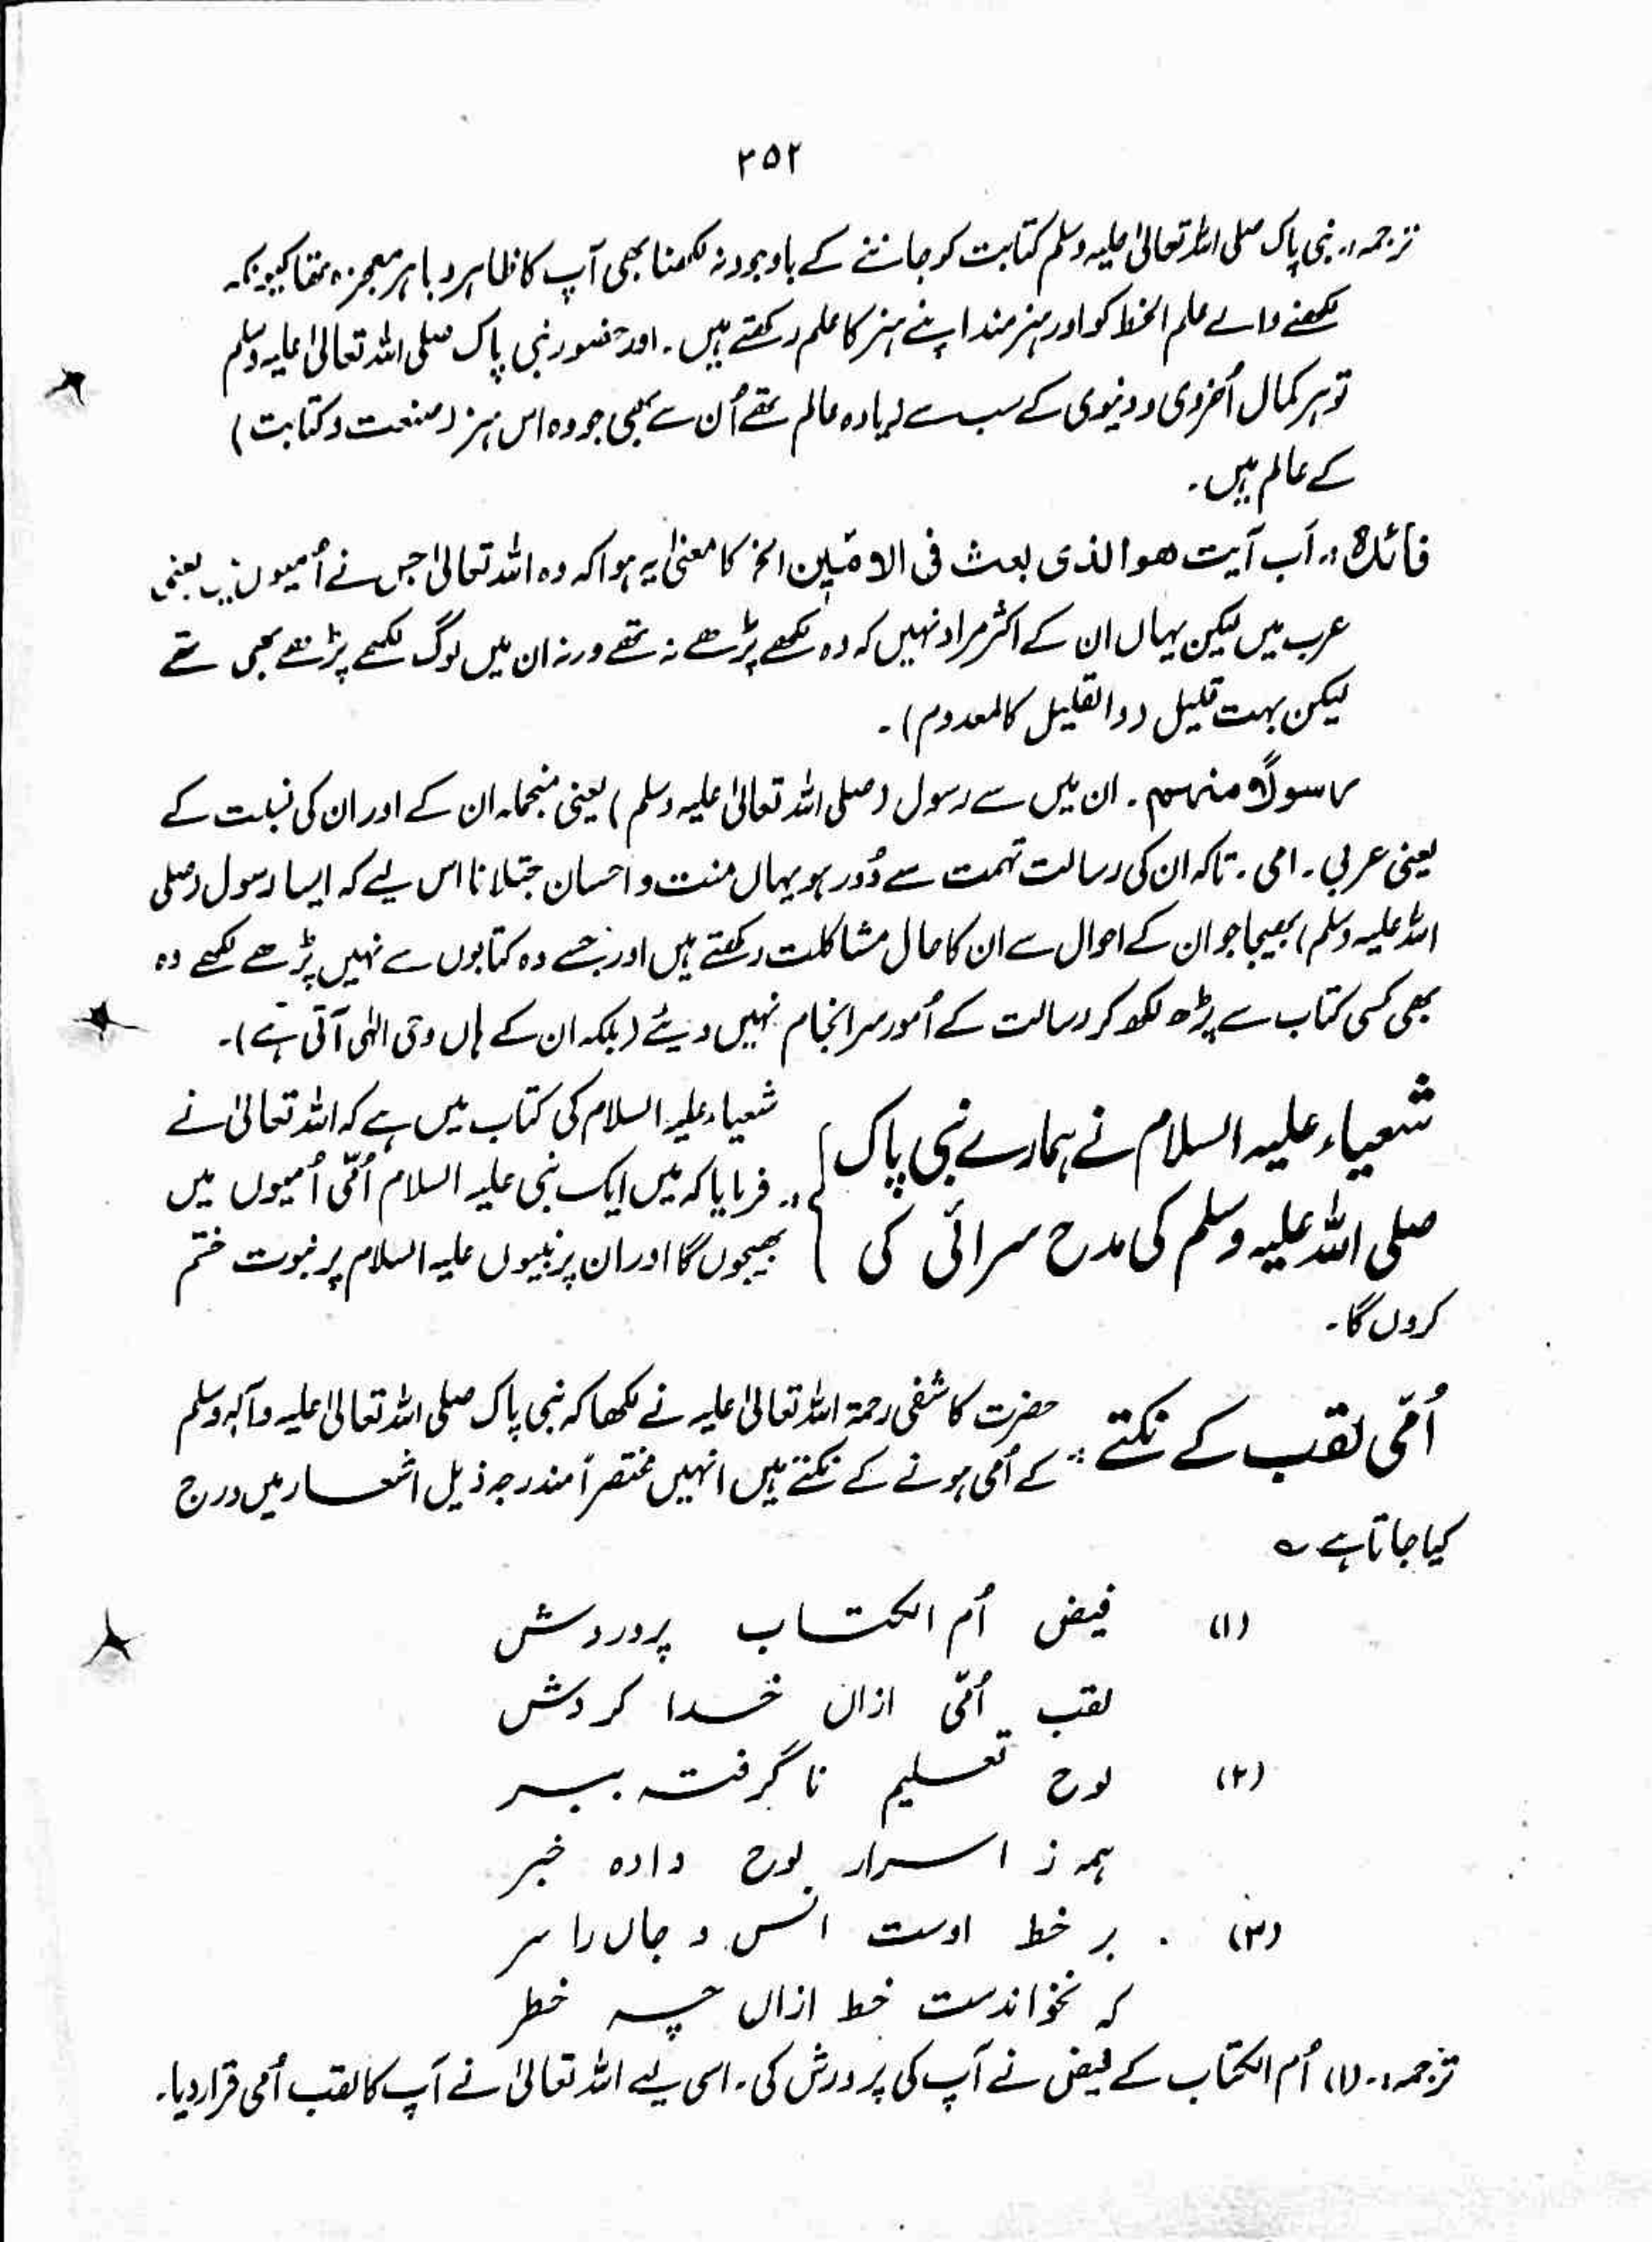 ۲۵۲
ترجمہ:۔ نبی پاک صلی اللہ تعالیٰ علیہ وسلم کتابت کو جاننے کے باوجود نہ لکھنا بھی آپ کا ظاہر و باہر معجزہ تھا کیونکہ
لکھنے والے علم الخط کو اور ہنرمند اپنے ہنر کا علم رکھتے ہیں۔ اور حضور نبی پاک صلی اللہ تعالیٰ علیہ وسلم
تو ہر کمال اُخروی و دنیوی کے سب سے زیادہ عالم تھے اُن سے بھی جو وہ اس ہنر (صنعت و کتابت)
کے عالم ہیں۔
فائدہ:۔ اَب آیت ھو الذی بعث فی الامّیین الخ کا معنیٰ یہ ہوا کہ وہ اللہ تعالیٰ جس نے اُمیوں یعنی
عرب میں لیکن یہاں ان کے اکثر مراد نہیں کہ وہ لکھے پڑھے نہ تھے ورنہ ان میں لوگ لکھے پڑھے بھی تھے
لیکن بہت قلیل (والقلیل کالمعدوم)۔
رسولاً منہم۔ ان میں سے رسول (صلی اللہ تعالیٰ علیہ وسلم) یعنی منجملہ ان کے اور ان کی نسبت کے
یعنی عربی۔ امی۔ تاکہ ان کی رسالت تہمت سے دُور ہو یہاں منت و احسان جتلانا اس لیے کہ ایسا رسول (صلی
اللہ علیہ وسلم) بھیجا جو ان کے احوال سے ان کا حال مشاکلت رکھتے ہیں اور جسے وہ کتابوں سے نہیں پڑھے لکھے وہ
بھی کسی کتاب سے پڑھ لکھ کر رسالت کے اُمور سرانجام نہیں دیئے (بلکہ ان کے ہاں وحی الٰہی آتی ہے)۔
شعیاء علیہ السلام نے ہمارے نبی پاک
صلی اللہ علیہ وسلم کی مدح سرائی کی
شعیاء علیہ السلام کی کتاب میں ہے کہ اللہ تعالیٰ نے
فرمایا کہ میں ایک نبی علیہ السلام اُمّی اُمیوں میں
بھیجوں گا اور ان پر نبیوں علیہ السلام پر نبوت ختم
کروں گا۔
اُمّی لقب کے نکتے:
حضرت کاشفی رحمۃ اللہ تعالیٰ علیہ نے لکھا کہ نبی پاک صلی اللہ تعالیٰ علیہ وآلہ وسلم
کے اُمی ہونے کے نکتے ہیں انہیں مختصراً مندرجہ ذیل اشعار میں درج
کیا جاتا ہے ؎
(۱) فیض اُم الکتاب پروردش
لقب اُمّی ازاں خدا کردش
(۲) لوح تعلیم ناگرفتہ ببر
ہمہ ز اسرار لوح دادہ خبر
(۳) بر خط اوست انس و جاں را سر
کہ نخواندست خط ازاں چہ خطر
ترجمہ:۔ (۱) اُم الکتاب کے فیض نے آپ کی پرورش کی۔ اسی لیے اللہ تعالیٰ نے آپ کا لقب اُمی قرار دیا۔